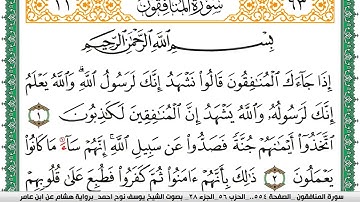 ١١ سُورَةُ المُنَافِقُون ٩٣
بِسْمِ اللَّهِ الرَّحْمَٰنِ الرَّحِيمِ
إِذَا جَآءَكَ الْمُنَٰفِقُونَ قَالُوا نَشْهَدُ إِنَّكَ لَرَسُولُ اللَّهِ وَاللَّهُ يَعْلَمُ
إِنَّكَ لَرَسُولُهُ وَاللَّهُ يَشْهَدُ إِنَّ الْمُنَٰفِقِينَ لَكَٰذِبُونَ ١
اتَّخَذُوا أَيْمَٰنَهُمْ جُنَّةً فَصَدُّوا عَن سَبِيلِ اللَّهِ إِنَّهُمْ سَآءَ مَا كَانُوا
يَعْمَلُونَ ٢ ذَٰلِكَ بِأَنَّهُمْ ءَامَنُوا ثُمَّ كَفَرُوا فَطُبِعَ عَلَىٰ قُلُوبِهِمْ
سورة المنافقون _ الصفحة ٥٥٤_ الحزب ٥٦_ الجزء ٢٨_ بصوت الشيخ يوسف نوح احمد_ برواية هشام عن ابن عامر